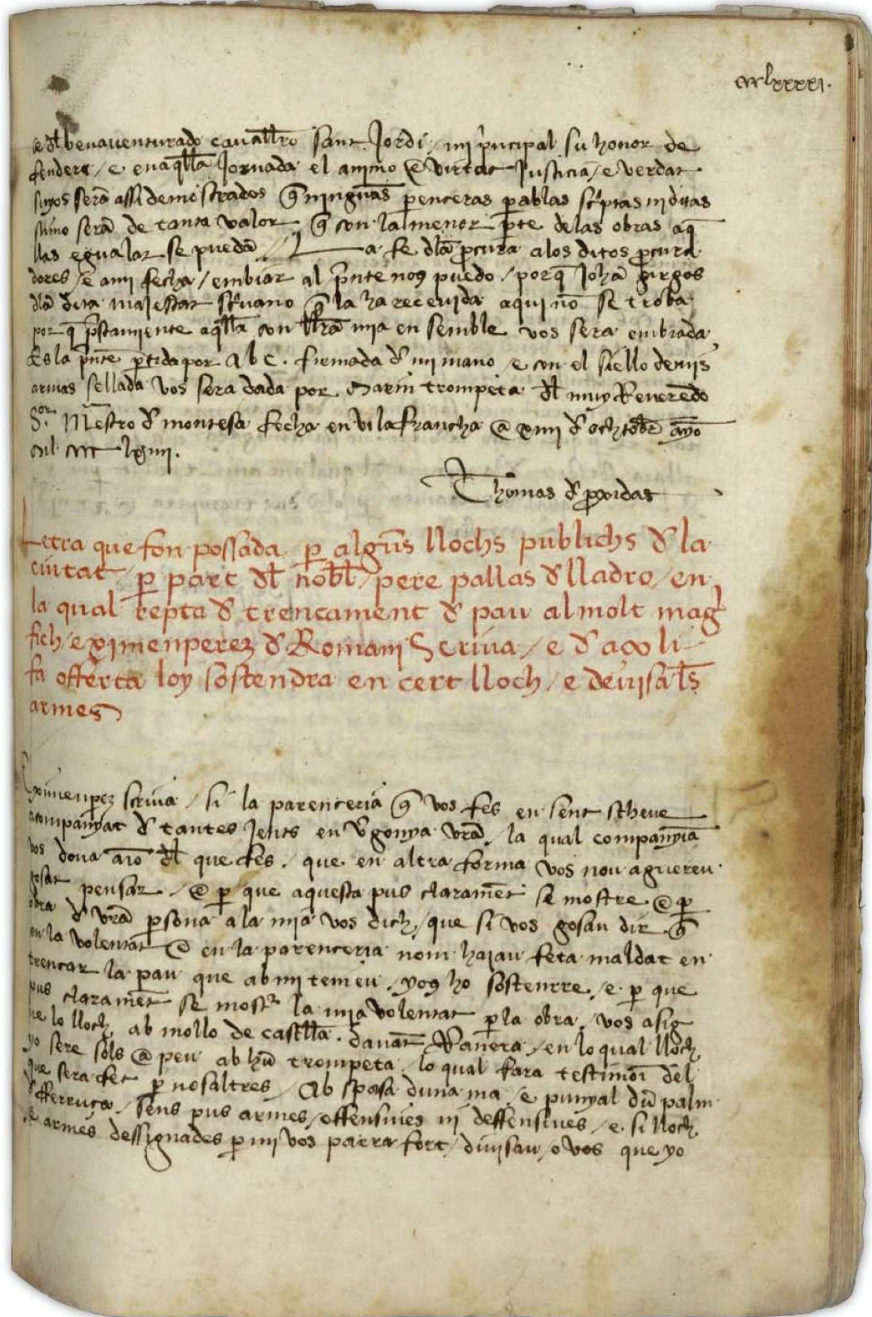 cclxxxxi.
e dl benauenturado cauallro sant Jordi / mi pncipal su honor de
fendera / e en aqlla Jornada el animo e virtut Justicia / e verdat
suyos sera assi demostrados q ningunas penceras pablas scptas ni ditas
sino sera de tanta valor q con la menor pte delas obras aq
llas egualar se pueda / La fe dla pcura alos ditos pcura
dores / e ami fecha / embiar al pnte nos puedo / porq Joha
dla dita maiestat scriuano q la ha receuida aqui no se troba
por q pstamiente aqlla con llra mia en semble vos sera embiada
Es la pnte ptida por A b c. firmada d mi mano e con el siello de mis
armas sellada vos sera dada por Marti trompeta dl muy Reueredo
Sor Mestro d montesa fecha en vilafrancha a xiiii d ochtobre ayo
Mil cccc lxiiii.
Thomas d proxidas
Letra que fon possada p alguns llochs publichs d la
ciutat / p part dl nobl / pere pallas d lladro / en
la qual repta d trencament d pau al molt mag
fich / eximenperez d Romani Scriua / e d aço li
fa offerta loy sostendra en cert lloch / e deuisa ls
armes
Eximenperez scriua / si la parenceria q vos fes en sent steue
acompanyat d tantes Jents en vgonya vra / la qual companyia
vos dona aro dl que fes. que en altra forma vos nou aguereu
gosat pensar / e p que aquesta pus clarament se mostre e p
obra d vra psona ala mia vos dich / que si vos gosau dir q
en la volentat e en la parenceria nom haiau feta maldat en
trencar la pau que ab mi temeu. yo us ho sostenrre / e p que
pus clarament se mostr la mia volentat p la obra / vos asig
ne lo lloch ab mollo de castlla dauant Ranera / en lo qual lloch
yo sere sols a peu ab hu trompeta / lo qual fara testimoni del
que sera fet p nosaltres / Ab spasa duna ma / e punyal du palm
d fferruça / sens pus armes / offensiues ni deffensiues / e. si lloch
e armes dessignades p mi vos parra fort / diuisau / o vos que yo